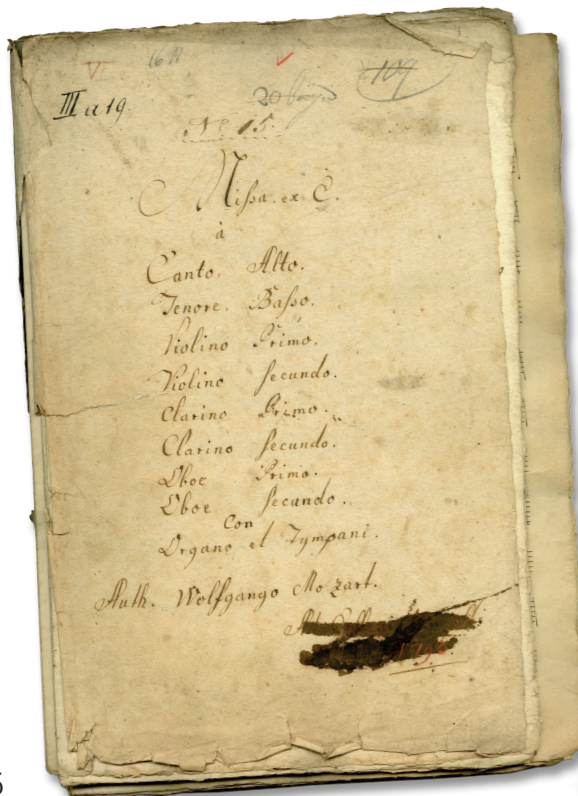 VI 16
109
III a 19.
20
No 15.
Missa. ex C.
à
Canto. Alto.
Tenore. Basso.
Violino Primo.
Violino Secundo.
Clarino Primo.
Clarino Secundo.
Oboe Primo.
Oboe Secundo.
Con
Organo et Tympani.
Auth. Wolfgango Mozart.